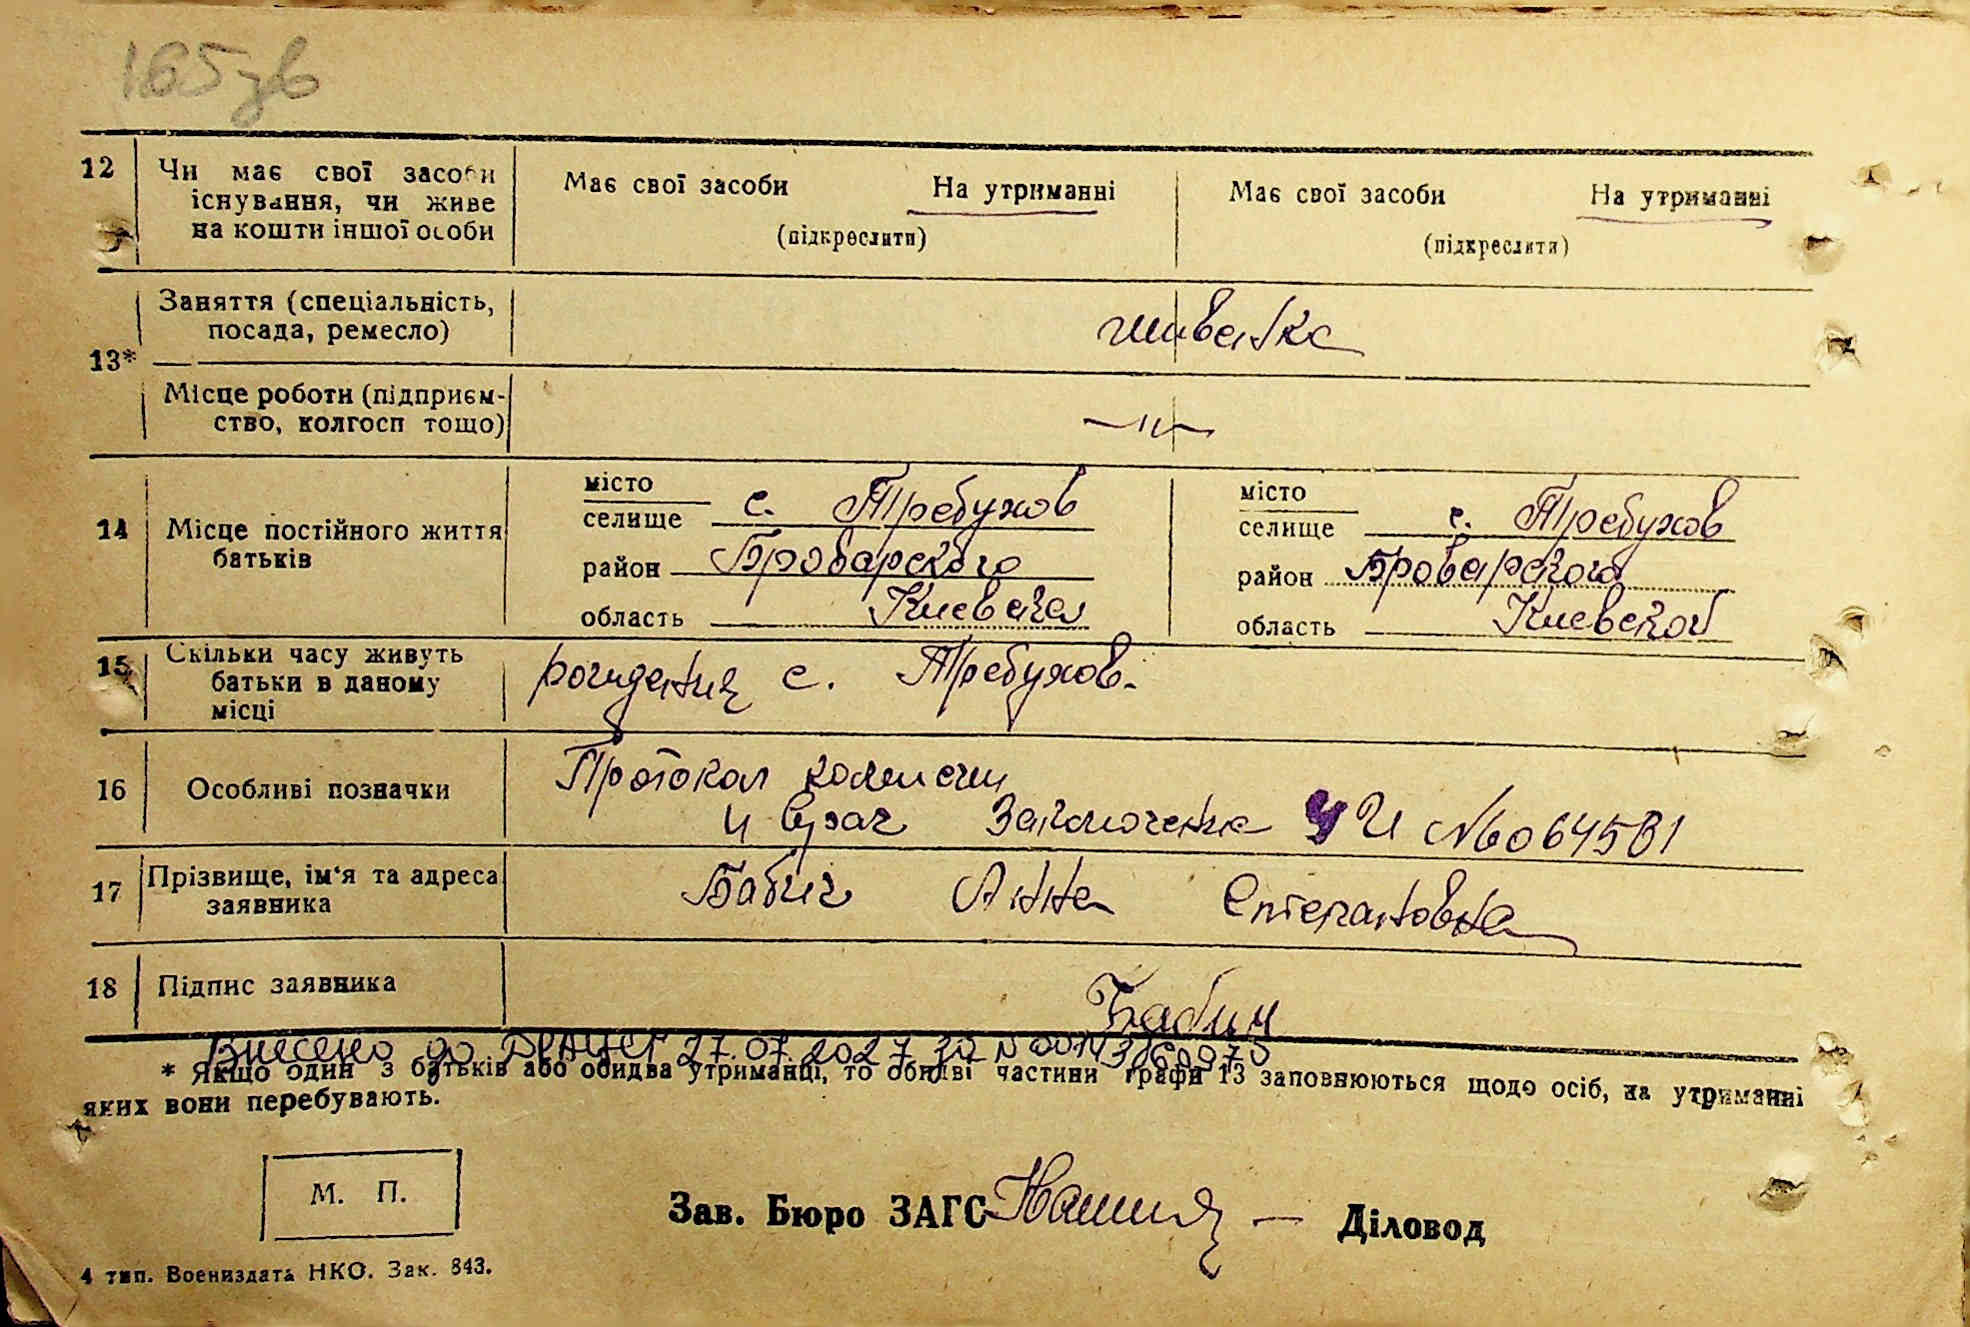 165зв
12 Чи має свої засоби Має свої засоби На утриманні Має свої засоби На утриманні
існування, чи живе
на кошти іншої особи (підкреслити) (підкреслити)
Заняття (спеціальність,
посада, ремесло) швейка
13*
Місце роботи (підприєм-
ство, колгосп тощо) —〃—
14 Місце постійного життя
батьків
місто
селище с. Требухов
район Броварского
область Киевская
місто
селище с. Требухов
район Броварского
область Киевской
15 Скільки часу живуть
батьки в даному
місці
рождения с. Требухов.
16 Особливі позначки
Протокол комисии
и врач Заключение УИ №064581
17 Прізвище, ім'я та адреса
заявника
Бабич Анна Степановна
18 Підпис заявника Бабич
Внесено до ДРАЦСГ 27.07.2027
* Якщо один з батьків або обидва утриманці, то обидві частини графи 13 заповнюються щодо осіб, на утриманні
яких вони перебувають.
М. П.
Зав. Бюро ЗАГС Діловод
4 тип. Воениздата НКО. Зак. 843.